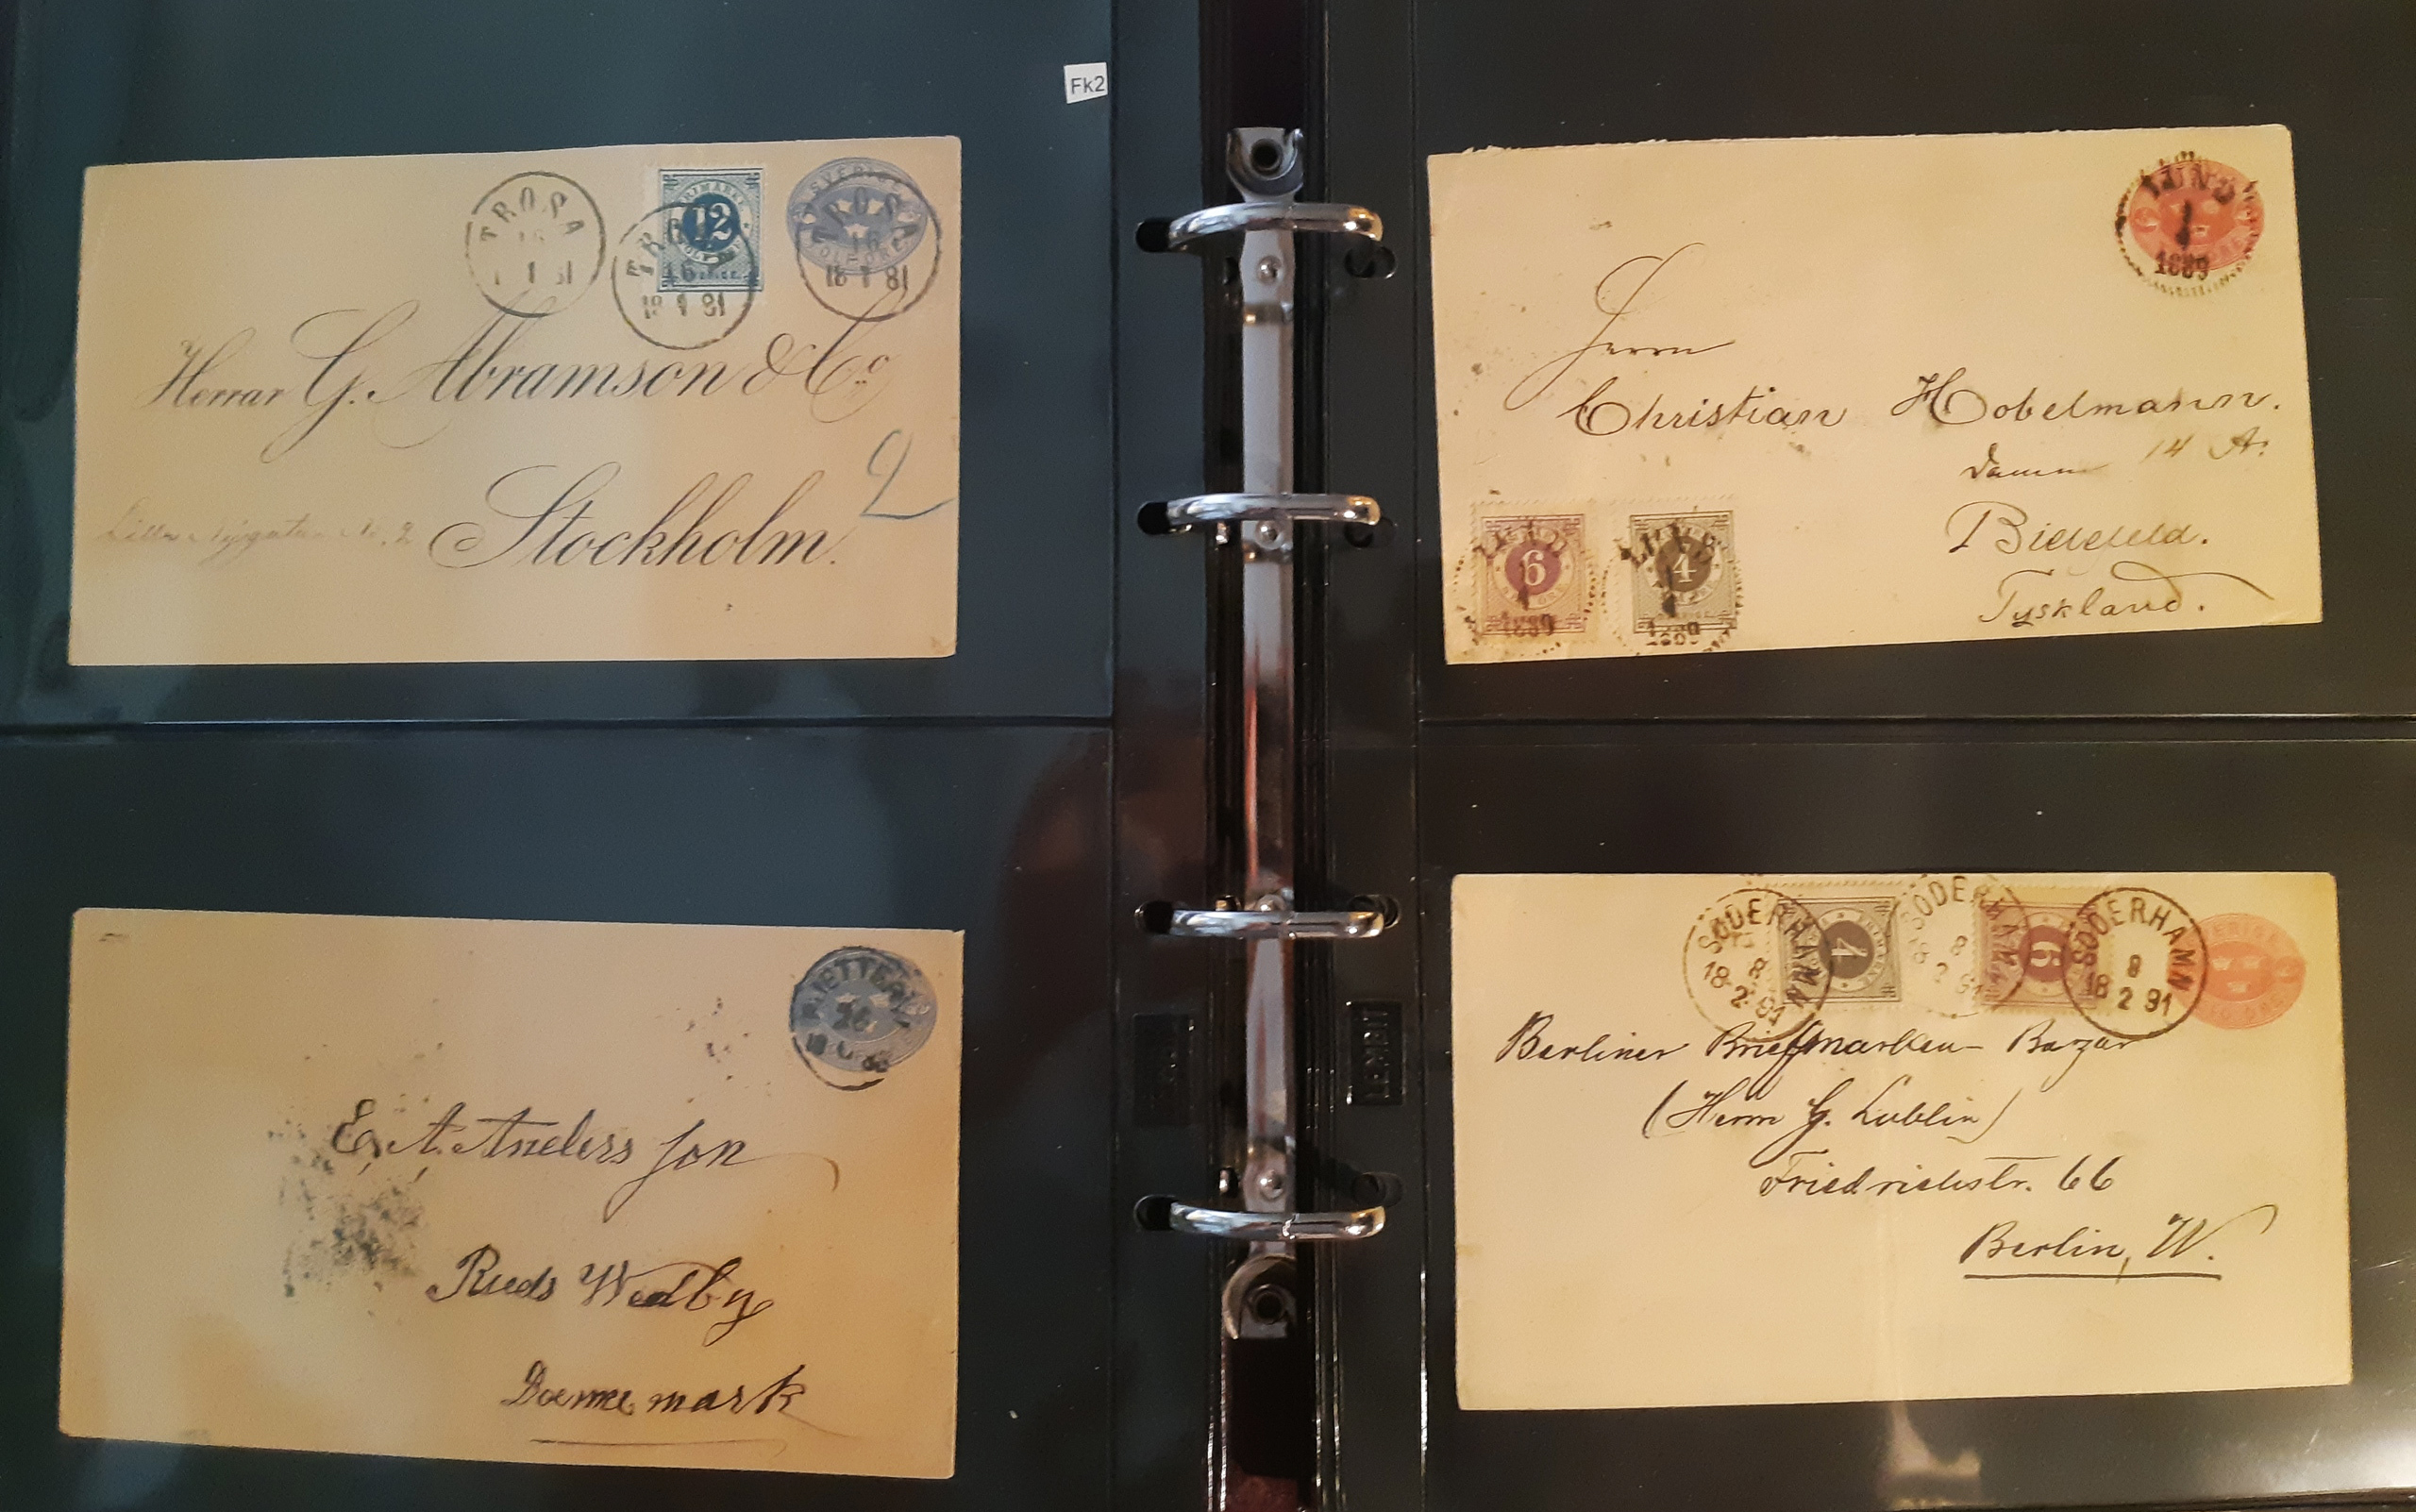 Fk2
TROSA
16
1 81
FRIMÄRKE
12
TROSA
16
18 1 81
SVERIGE
TOLF ÖRE
TROSA
16
18 1 81
Herrar G. Abramson & Co
2
Stockholm.
LUND
1889
Herrn
Christian Hobelmann.
Damm 14 A.
Bielefeld.
Tyskland.
LUND
6
1889
LUND
4
1889
26
E. A. Anders son
Rueds Wedby
Doenne mark
LEMBIT
SÖDERHAMN
8
18 2 91
4
SÖDERHAMN
8
18 2 91
6
SÖDERHAMN
8
18 2 91
Berliner Briefmarken-Bazar
(Herrn G. Lublin)
Friedrichstr. 66
Berlin, W.